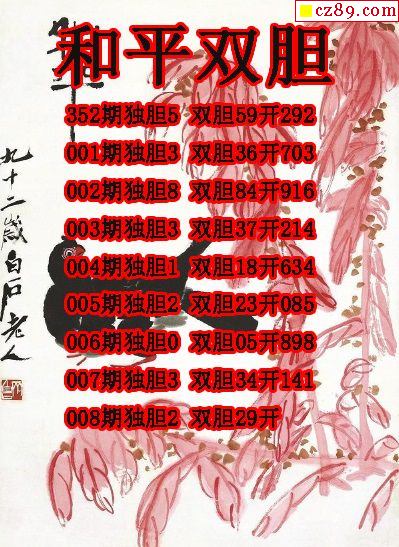 cz89.com
和平双胆
352期独胆5 双胆59开292
001期独胆3 双胆36开703
002期独胆8 双胆84开916
003期独胆3 双胆37开214
004期独胆1 双胆18开634
005期独胆2 双胆23开085
006期独胆0 双胆05开898
007期独胆3 双胆34开141
008期独胆2 双胆29开
九十二岁白石老人